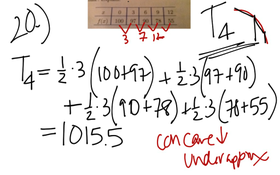 20.)
T4
3 7 12
T4 = ½·3(100+97) + ½·3(97+90)
+ ½·3(90+78) + ½·3(78+55)
= 1015.5
concave ↓
underapprox